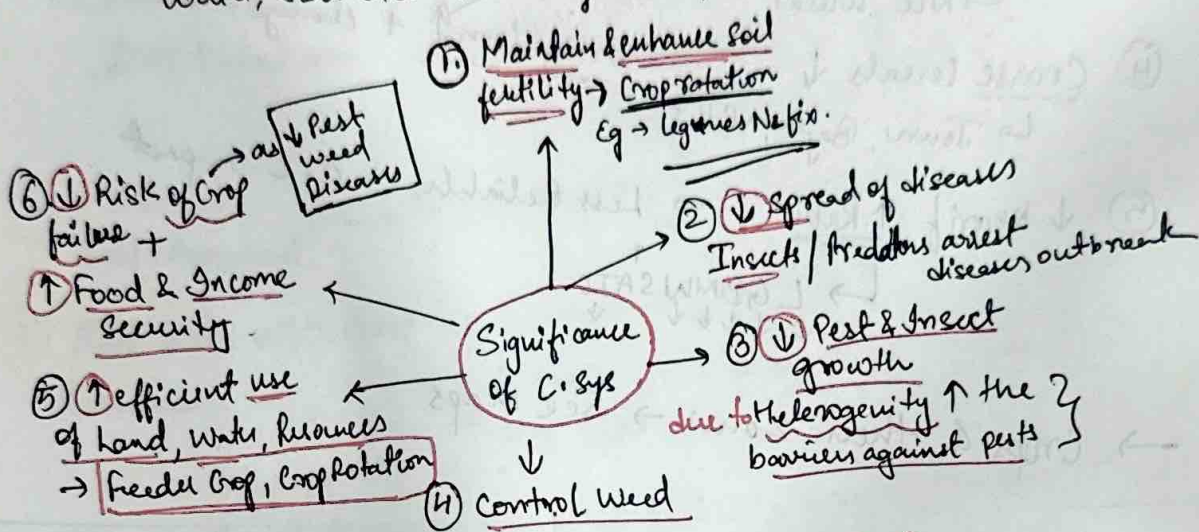 ① Maintain & enhance Soil
fertility → Crop rotation
Eg → legumes N2 fix.
② ↓ Spread of diseases
Insects / Predators arrest
diseases outbreak
③ ↓ Pest & Insect
growth
due to Heterogenity ↑ the
barriers against pests
④ Control Weed
⑤ ↑ efficient use
of Land, Water, Resources
→ Feeder Crop, Crop Rotation
⑥ ↓ Risk of Crop → as ↓ Pest
Weed
Diseases
failure +
↑ Food & Income
Security
Significance
of C. Sys